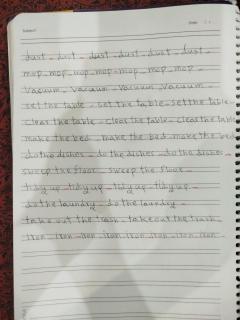 Subject:
Date:
dust - dust - dust - dust - dust - dust -
mop - mop - mop - mop - mop - mop -
Vacuum - Vacuum - Vacuum - Vacuum -
set the table - set the table - set the table
clear the table - clear the table - clear the table
make the bed - make the bed - make the bed
do the dishes - do the dishes - do the dishes -
sweep the floor - sweep the floor -
tidy up - tidy up - tidy up - tidy up -
do the laundry - do the laundry -
take out the trash - take out the trash -
iron - iron - iron - iron - iron - iron - iron